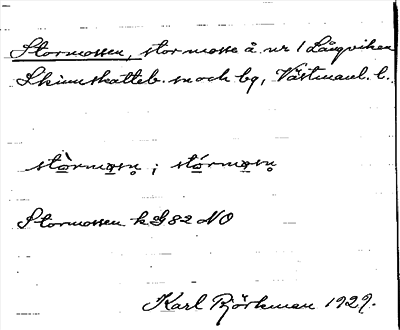 Stormossen, stor mosse å nr 1 Långviken
Skinnskatteb. sn och bg, Västmanl. l.
stòrmo̱sn̥ ; stórmo̱sn̥
Stormossen k G82 NO
Karl Björkman 1929.